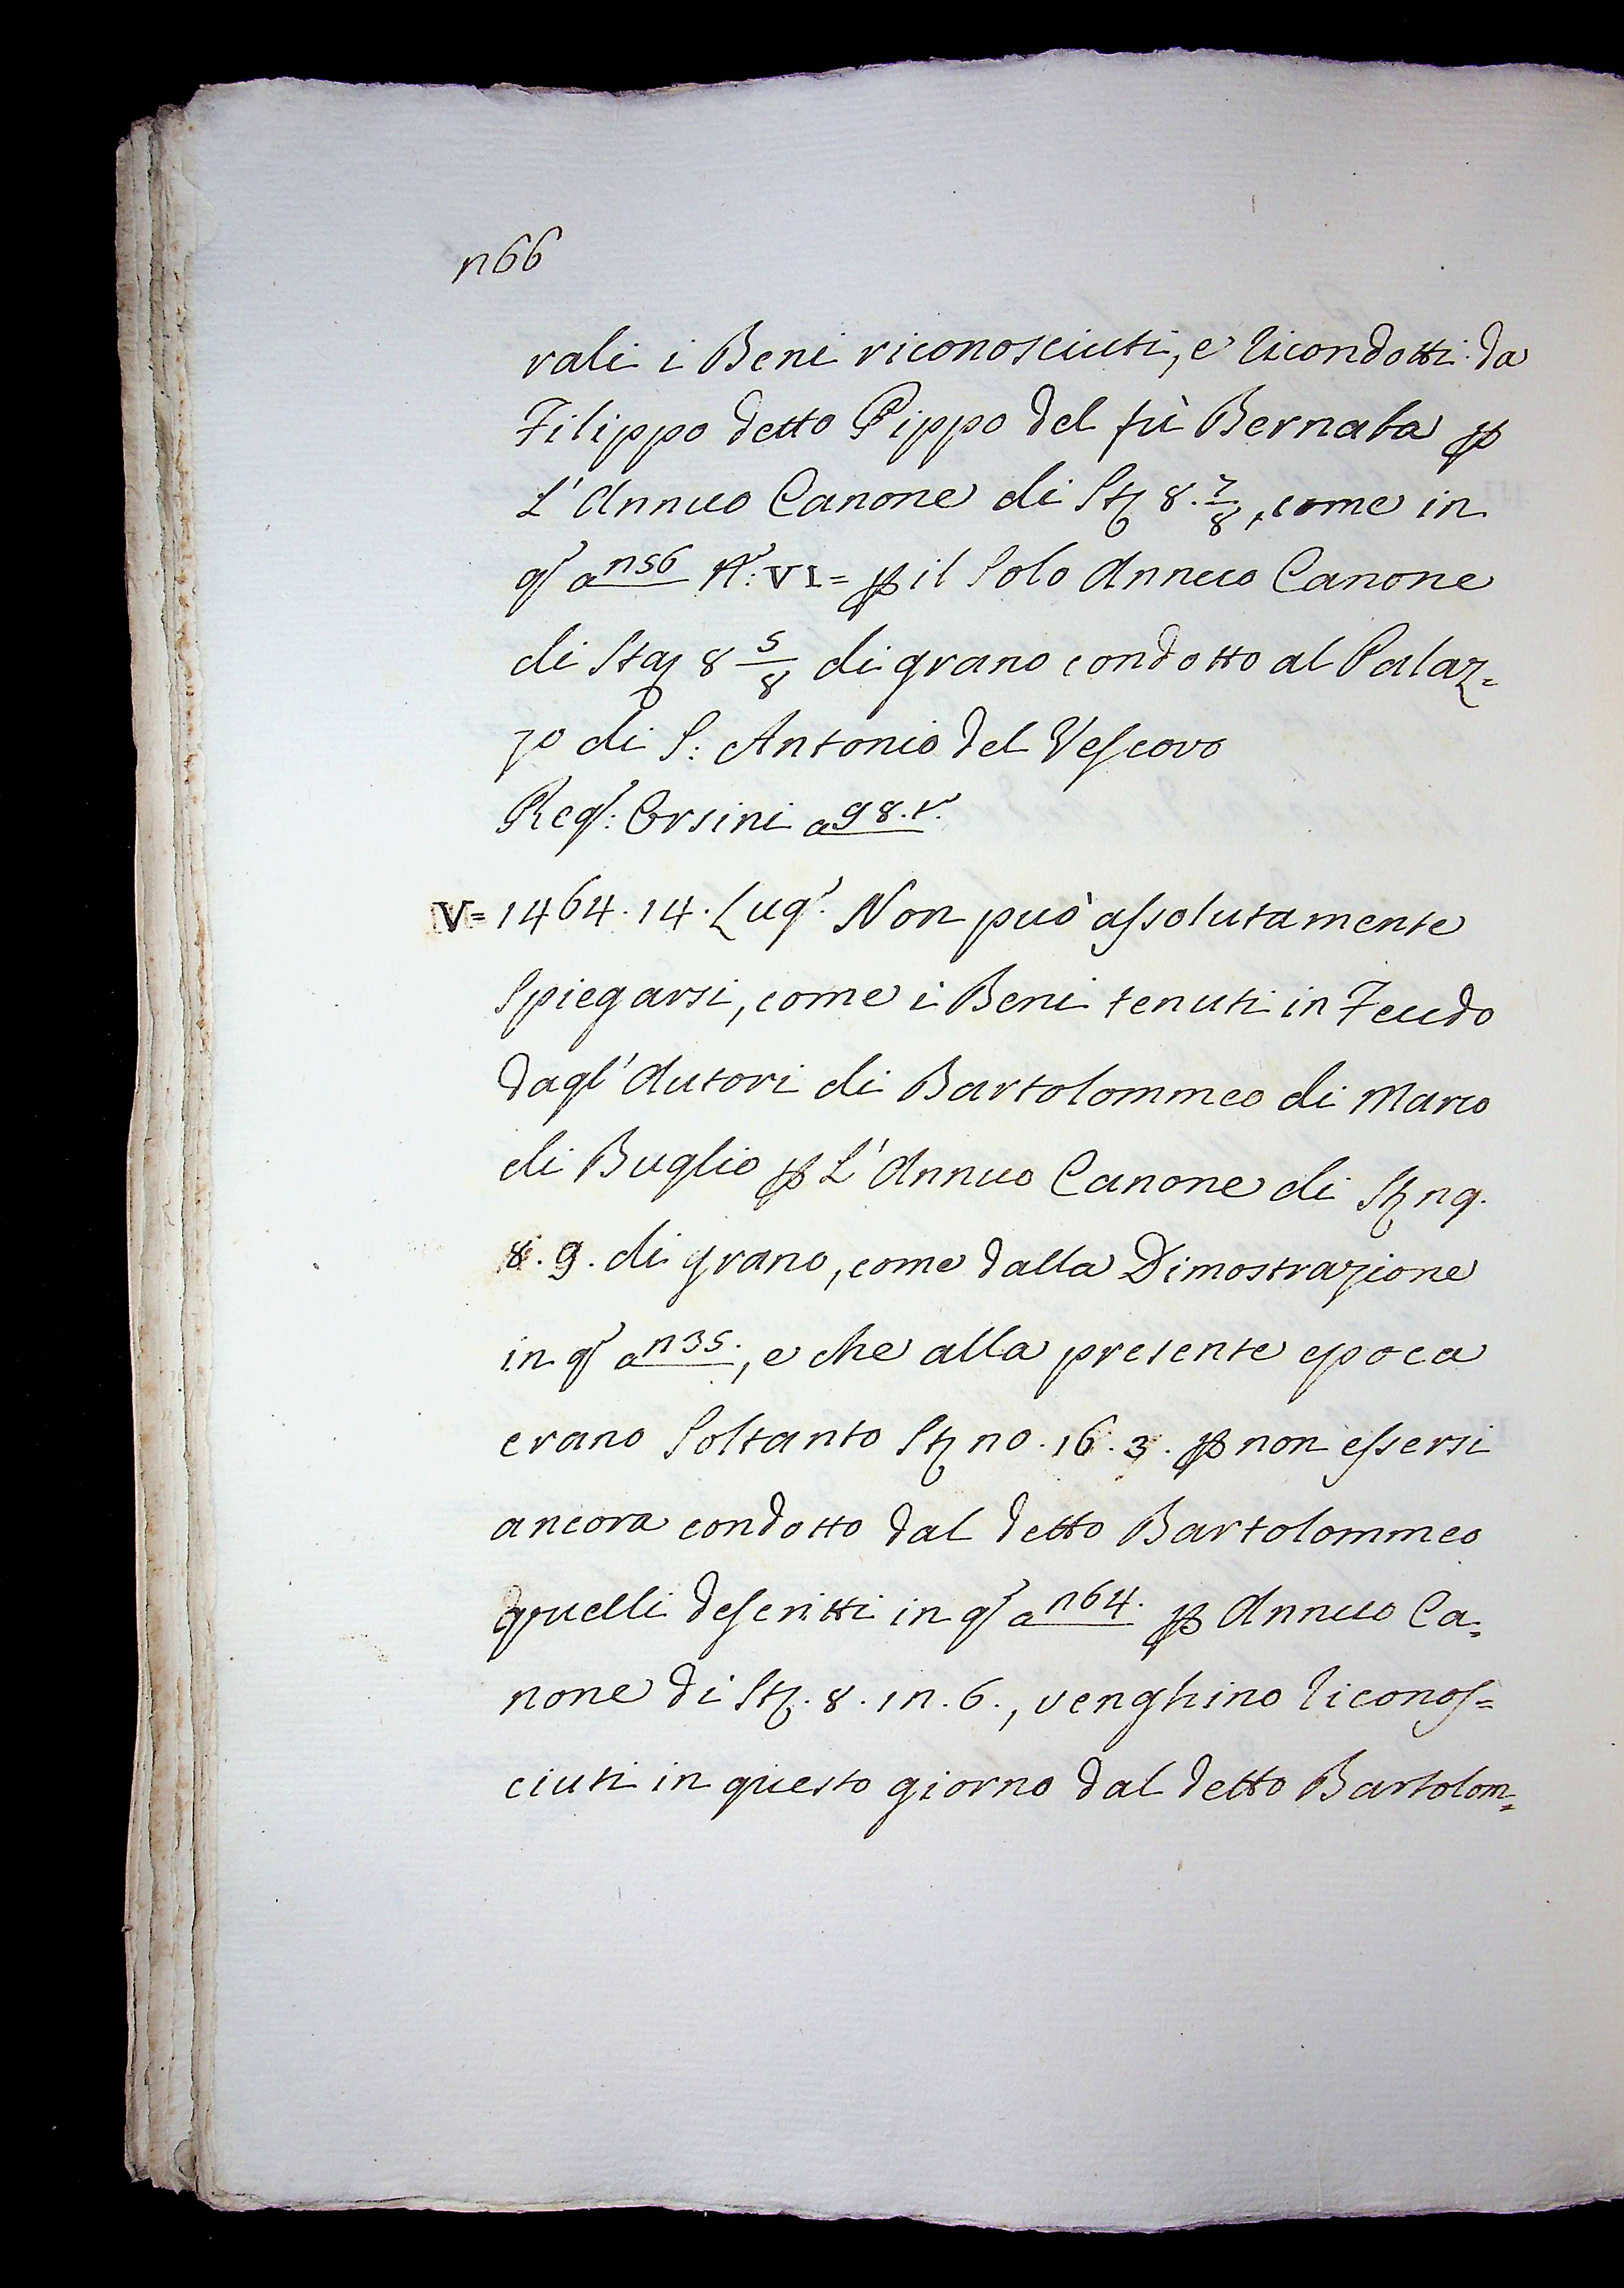 n66
rali i Beni riconosciuti, e ricondotti da
Filippo detto Pippo del fù Bernaba p
L'Annuo Canone di St 8. 7/8, come in
q. a n56 N: VI= p il solo Annuo Canone
di Sta 8 5/8 di grano condotto al Palaz=
zo di S: Antonio del Vescovo
Reg: Orsini a 98. v.
V= 1464. 14. Lug. Non può assolutamente
spiegarsi, come i Beni tenuti in Feudo
dagl'Autori di Bartolommeo di Marco
di Buglio p L'Annuo Canone di St n9.
8. 9. di grano, come dalla Dimostrazione
in q. a n35., e che alla presente epoca
erano soltanto St no. 16. 3. p non essersi
ancora condotto dal detto Bartolommeo
quelli descritti in q. a n64. p Annuo Ca=
none di St. 8. 1n. 6., venghino riconos=
ciuti in questo giorno dal detto Bartolom=